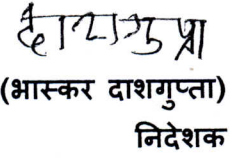 दाशगुप्ता
(भास्कर दाशगुप्ता)
निदेशक